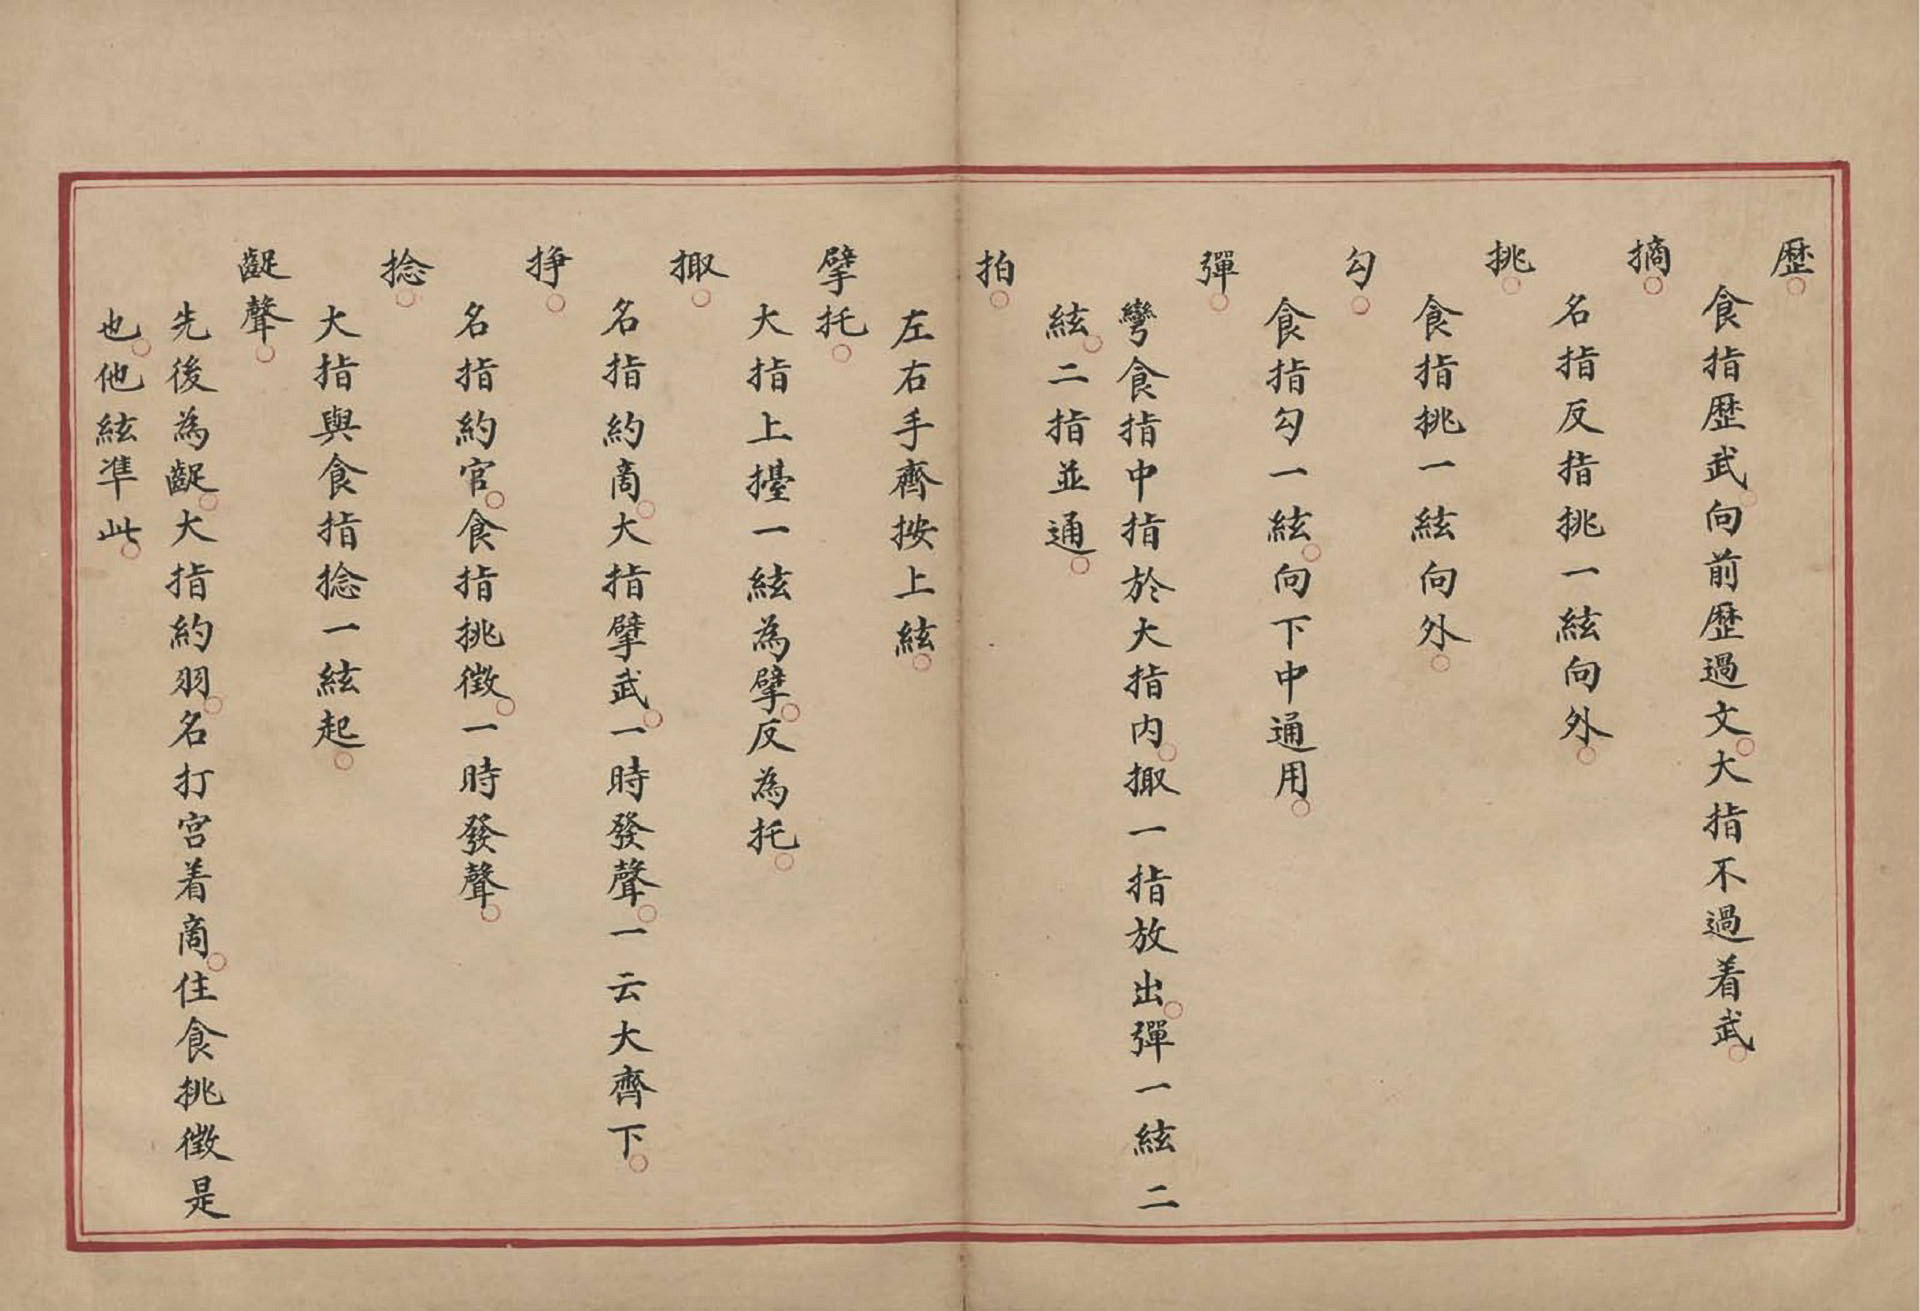 歷
食指歷武向前歷過文大指不過着武
摘
名指反指挑一絃向外
挑
食指挑一絃向外
勾
食指勾一絃向下中通用
彈
彎食指中指於大指内掫一指放出彈一絃二
絃二指並通
拍
左右手齊按上絃
擘托
大指上擡一絃為擘反為托
掫
名指約商大指擘武一時發聲一云大齊下
掙
名指約官食指挑徵一時發聲
捻
大指與食指捻一絃起
齪聲
先後為齪大指約羽名打宮着商住食挑徵是
也他絃準此